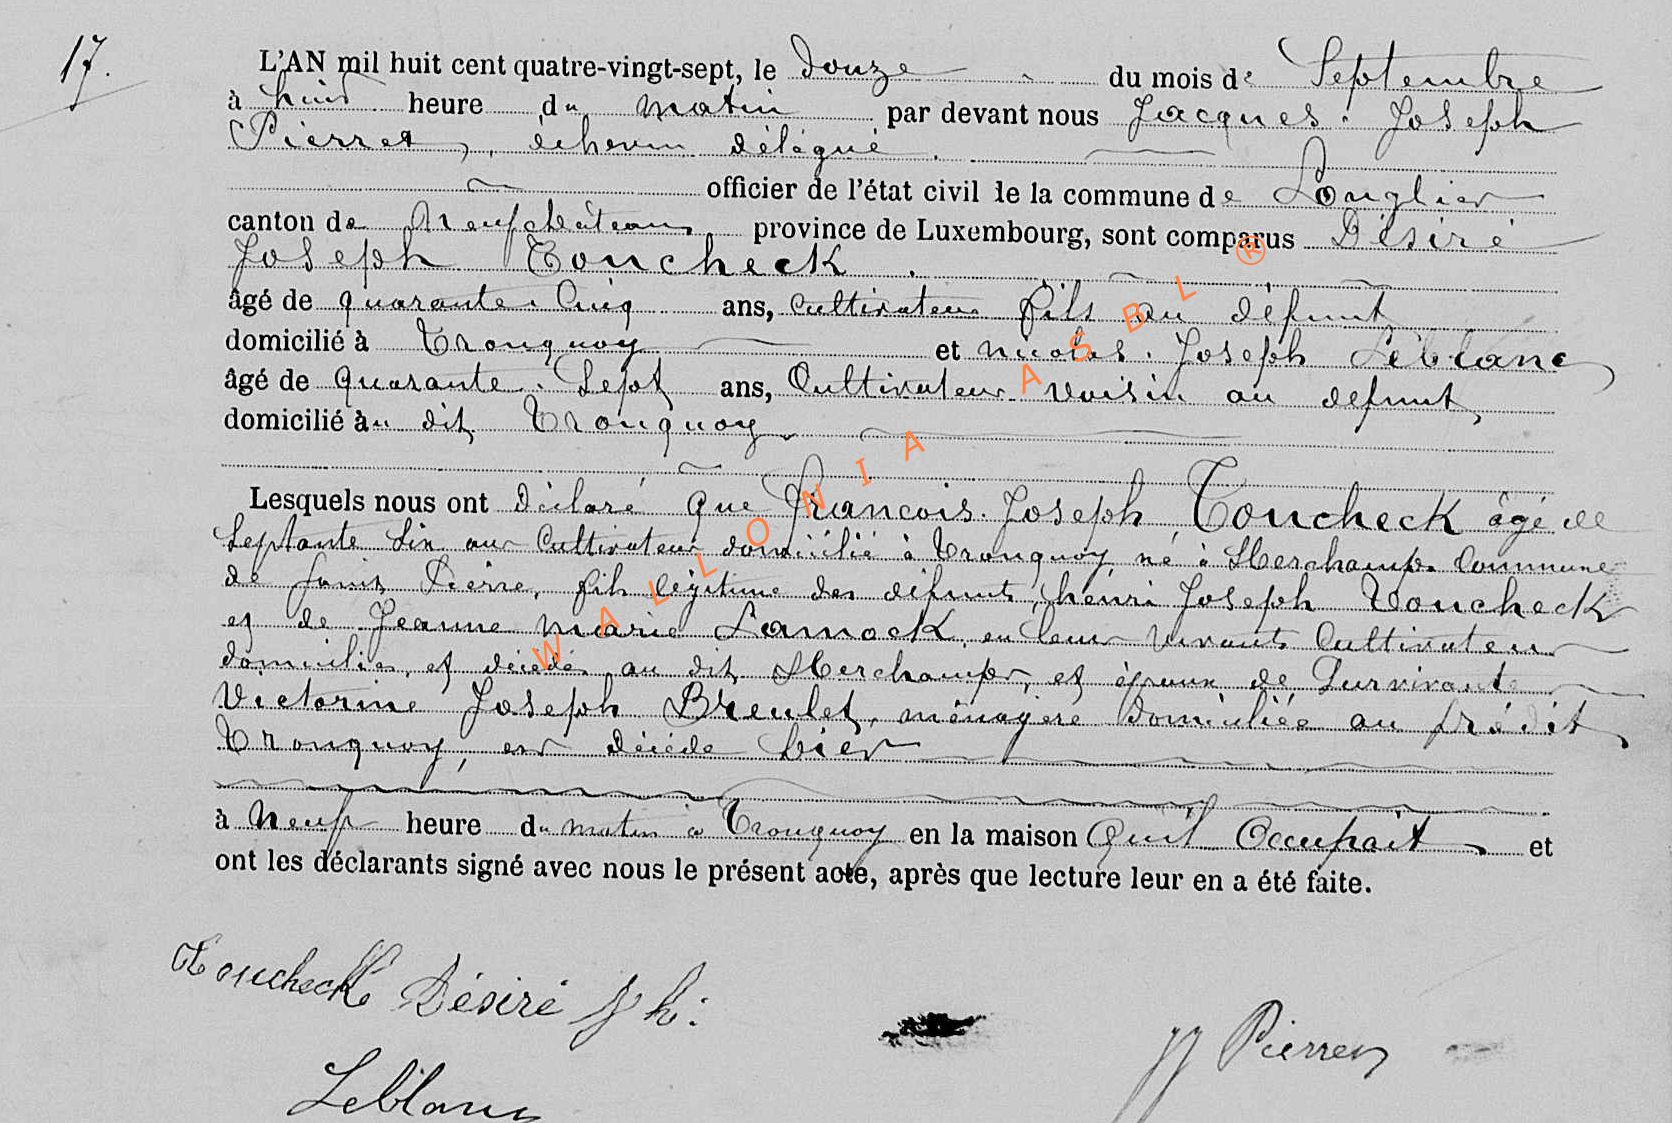 17.
L'AN mil huit cent quatre-vingt-sept, le douze du mois de Septembre
à huit heure du matin par devant nous Jacques Joseph
Pierret, échevin délégué
officier de l'état civil de la commune de Longlier
canton de Neufchâteau province de Luxembourg, sont comparus Désiré
Joseph Toucheck
âgé de quarante cinq ans, cultivateur fils au défunt
domicilié à Tronquoy et nicolas Joseph Leblanc
âgé de quarante Sept ans, Cultivateur voisin au defunt,
domicilié au dit Tronquoy
Lesquels nous ont déclaré que francois Joseph Toucheck âgé de
Septante Six ans Cultivateur domicilié à Tronquoy né à Sherchamps Commune
de Pierre, fils légitime des défunts, henri Joseph Toucheck
et de Jeanne marie Lamock en leur vivants Cultivateur
domiciliés et décédés au dit Sherchamps, et époux de Survivante
Victorine Joseph Breulet, ménagère domiciliée au prédit
Tronquoy, est décédé hier
à Neuf heure du matin à Tronquoy en la maison Qu'il Occupait et
ont les déclarants signé avec nous le présent acte, après que lecture leur en a été faite.
Toucheck Désiré Jph:
JJ Pierret
Leblanc
WALLONIA ASBL ®